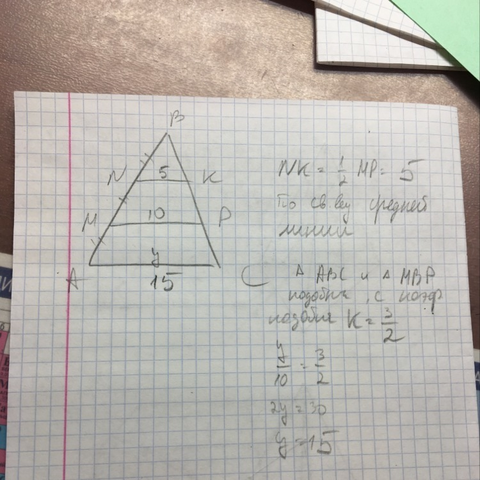 B
N 5 K
M 10 P
y
A 15 C
NK = 1/2 MP = 5
По св-ву средней
линии
Δ ABC и Δ MBP
подобны, с коэф
подобия K = 3/2
y/10 = 3/2
2y = 30
y = 15